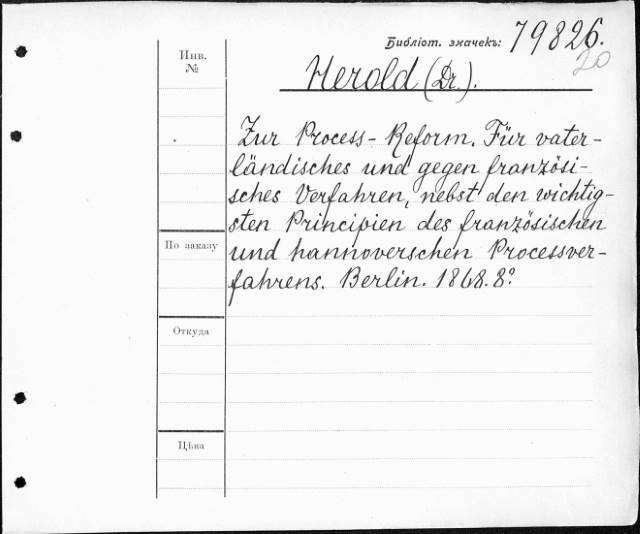 Библіот. значекъ: 79826.
20
Инв.
№
Herold (Dr.).
Zur Process-Reform. Für vater-
ländisches und gegen französi-
sches Verfahren, nebst den wichtig-
sten Principien des französischen
По заказу
und hannoverschen Processver-
fahrens. Berlin. 1868. 8º
Откуда
Цѣна